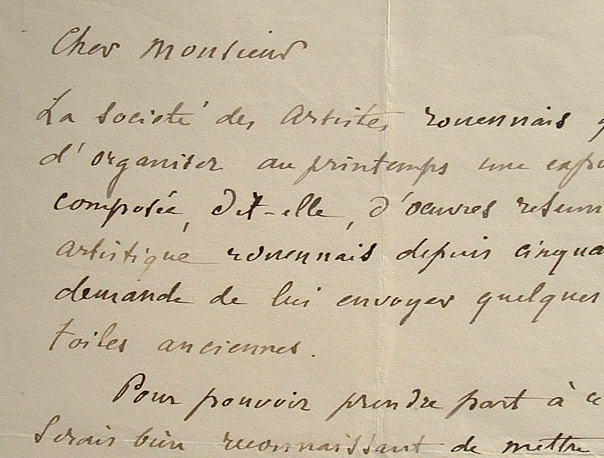 Cher Monsieur
La Societé des Artistes rouennais
d'organiser au printemps une expo
composée, dit-elle, d'oeuvres resum
artistique rouennais depuis cinqua
demande de lui envoyer quelques
toiles anciennes.
Pour pouvoir prendre part à ce
Serais bien reconnaissant de mettre